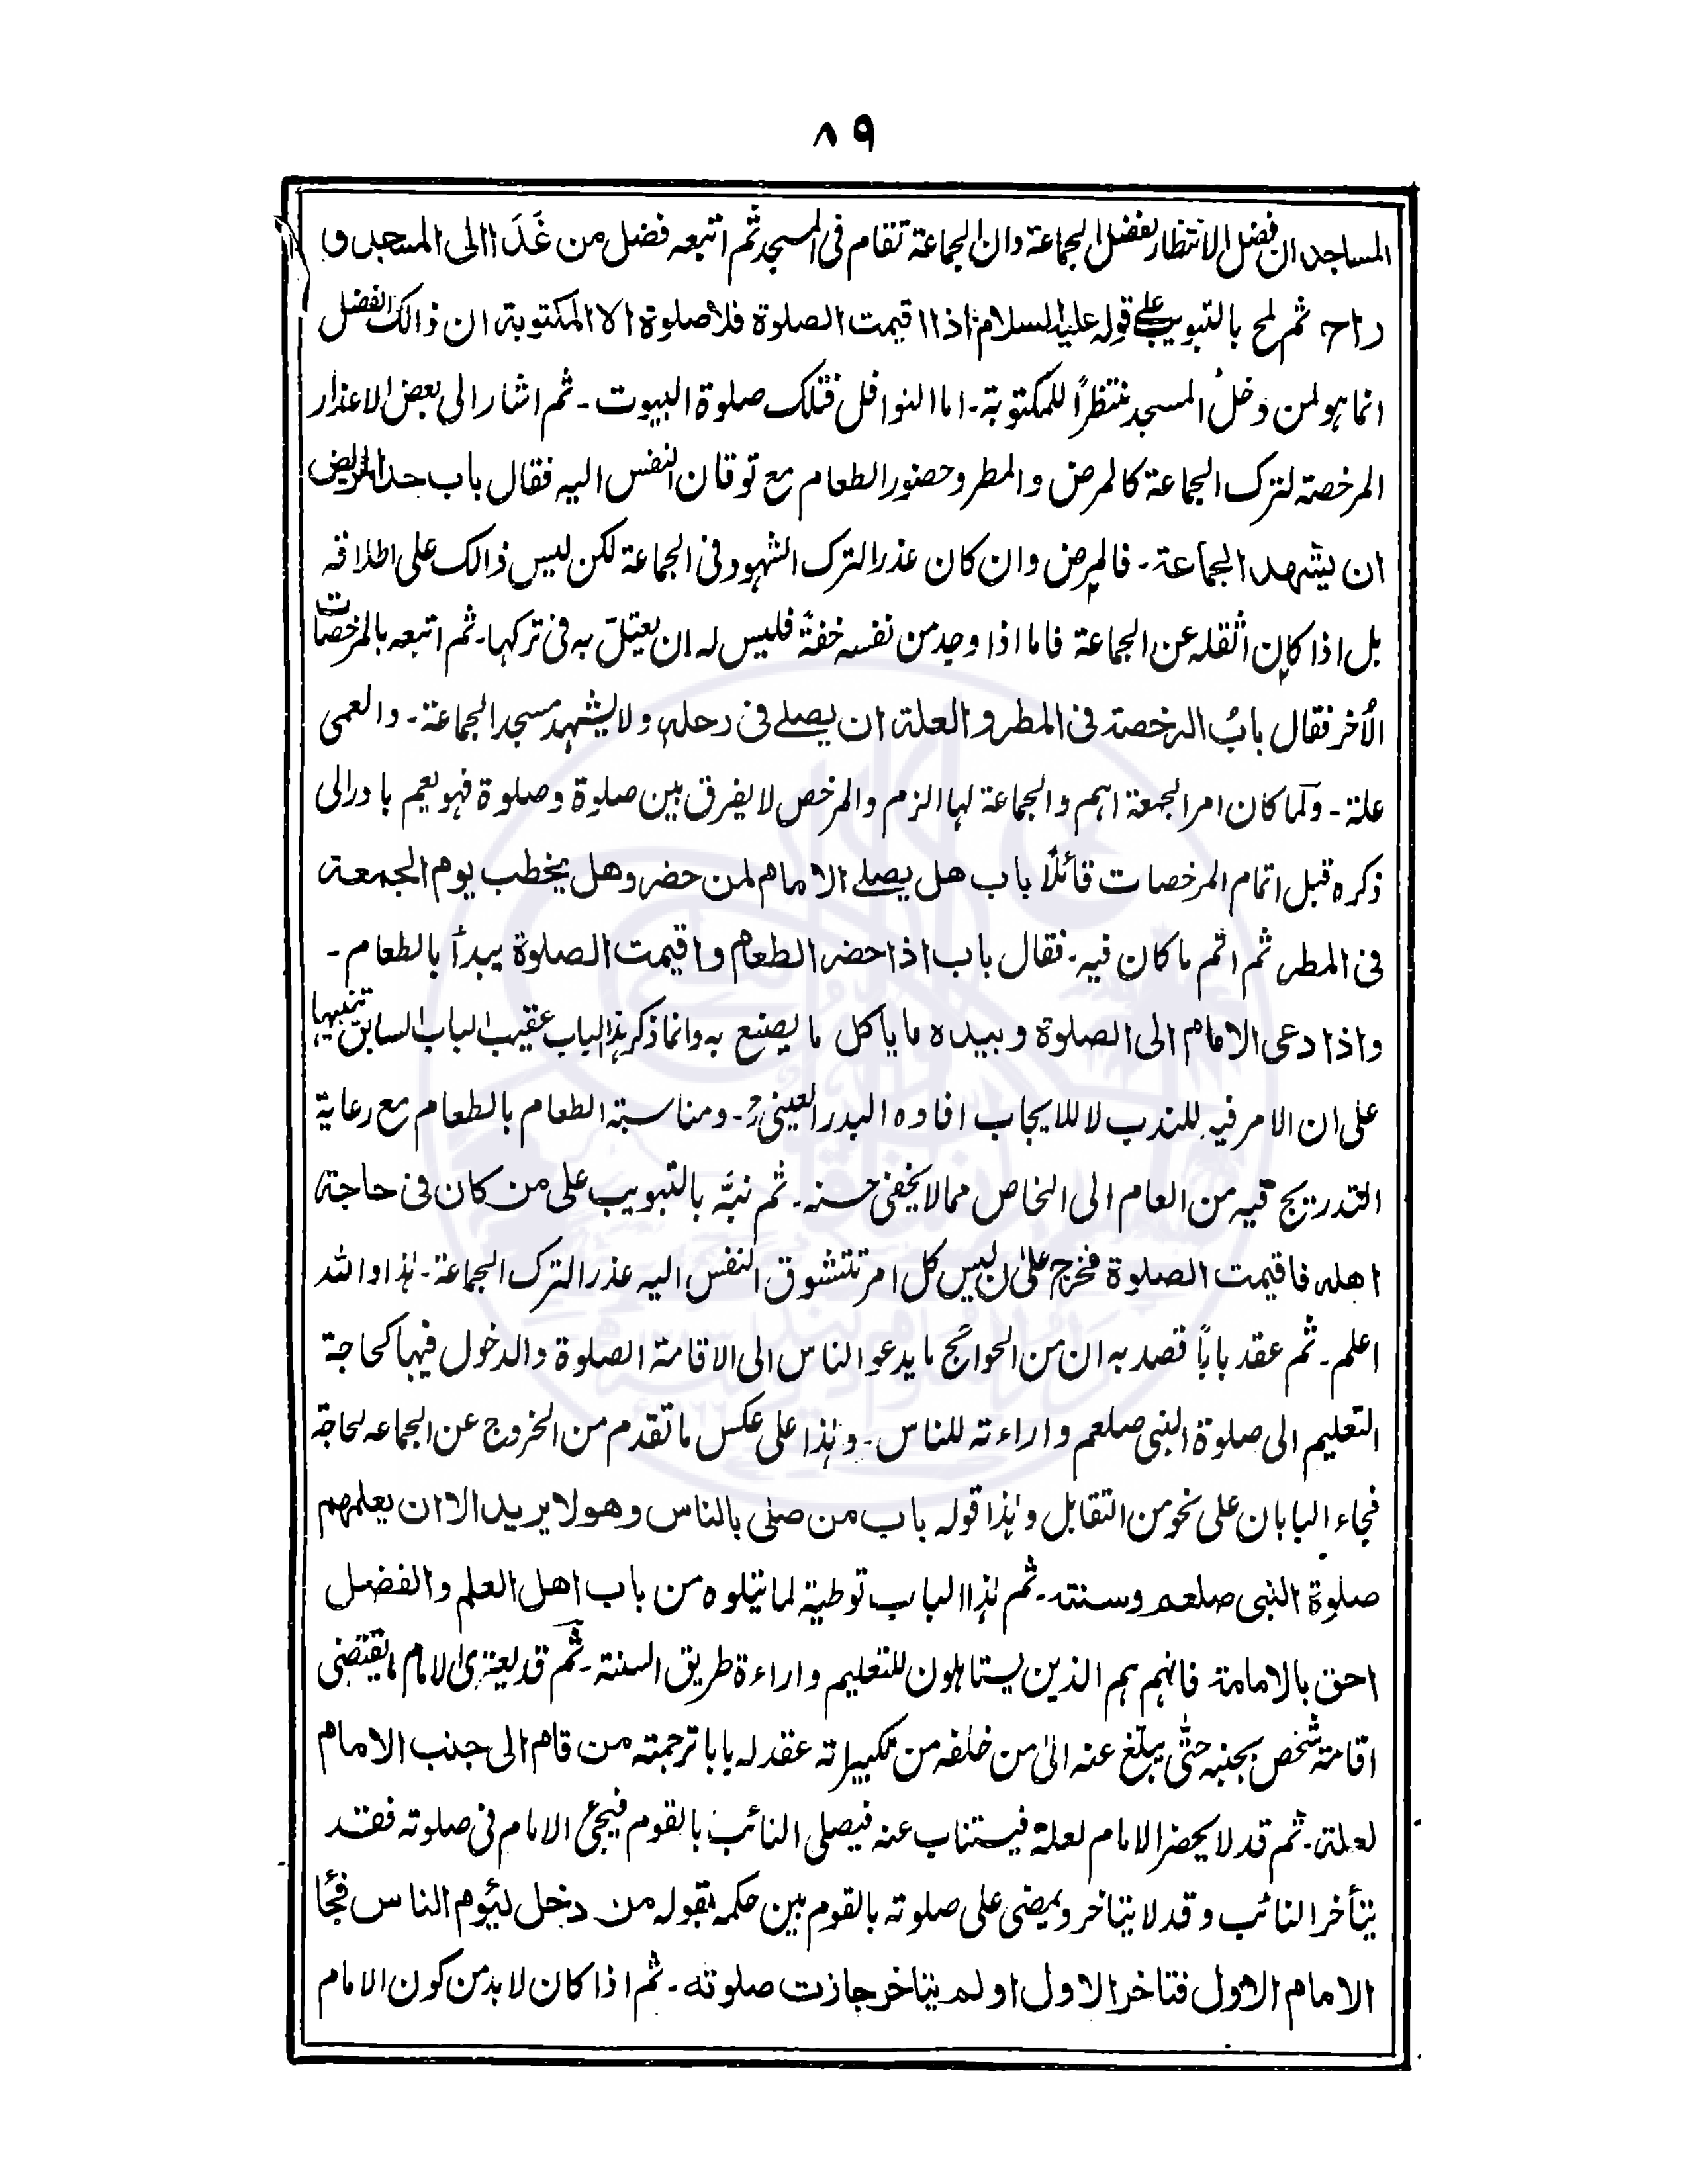 ٨٩
المساجد ان فضل الانتظار لفضل الجماعة وان الجماعة تقام فى المسجد ثم اتبعه فضل من غَدَا الى المسجد و
راح ثم لمح بالتبويب على قوله عليه السلام اذا اقيمت الصلوة فلا صلوة الا المكتوبة ان ذالك الفضل
انما هو لمن دخل المسجد منتظراً للمكتوبة۔ اما النوافل فتلك صلوة البيوت۔ ثم اشار الى بعض الاعذار
المرخصة لترك الجماعة كالمرض والمطر وحضور الطعام مع توقان النفس اليه فقال باب حد المريض
ان يشهد الجماعة۔ فالمرض وان كان عذرا لترك الشهود فى الجماعة لكن ليس ذالك على اطلاقه
بل اذا كان اثقله عن الجماعة فاما اذا وجد من نفسه خفةً فليس له ان يعتلّ به فى تركها۔ ثم اتبعه بالمرخصات
الأخر فقال بابُ الرخصة فى المطر والعلة ان يصلے فى رحله ولا يشهد مسجد الجماعة۔ والعمى
علة۔ ولما كان امر الجمعة اهم والجماعة لها الزم والمرخص لا يفرق بين صلوة وصلوة فهو يعم بادر الى
ذكره قبل اتمام المرخصات قائلاً باب هل يصلے الامام لمن حضر وهل يخطب يوم الجمعة
فى المطر ثم اتم ما كان فيه۔ فقال باب اذا حضر الطعام واقيمت الصلوة يبدأ بالطعام۔
واذا دعى الامام الى الصلوة وبيده ما ياكل ما يصنع به وانما ذكر هذا الباب عقيب الباب السابق تنبيها
على ان الامر فيه للندب لا للايجاب افاده البدر العينیؒ۔ ومناسبة الطعام بالطعام مع رعاية
التدريج فيه من العام الى الخاص مما لا يخفى حسنه۔ ثم نبَّه بالتبويب على من كان فى حاجة
اهله فاقيمت الصلوة فخرج على ان ليس كل امر تتشوق النفس اليه عذرا لترك الجماعة۔ هذا والله
اعلم۔ ثم عقد باباً قصد به ان من الحوائج ما يدعو الناس الى الاقامة الصلوة والدخول فيها كحاجة
التعليم الى صلوة النبى صلعم واراءته للناس۔ وهذا على عكس ما تقدم من الخروج عن الجماعه لحاجة
فجاء البابان على نحو من التقابل وهذا قوله باب من صلى بالناس وهو لا يريد الا ان يعلمهم
صلوة النبى صلعم وسنته۔ ثم هذا الباب توطية لما يتلوه من باب اهل العلم والفضل
احق بالامامة فانهم هم الذين يستاهلون للتعليم واراءة طريق السنة۔ ثم قد يعترى الامام ما يقتضى
اقامة شخص بجنبه حتّٰى يبلّغ عنه الٰى من خلفه من تكبيراته عقد له بابا ترجمته من قام الى جنب الامام
لعلة۔ ثم قد لا يحضر الامام لعلة فيستناب عنه فيصلى النائب بالقوم فيجئ الامام فى صلوته فقد
يتأخر النائب وقد لا يتاخر ويمضى على صلوته بالقوم بين حكمه بقوله من دخل ليؤم الناس فجا
الامام الاول فتاخر الاول او لم يتاخر جازت صلوته۔ ثم اذا كان لا بد من كون الامام